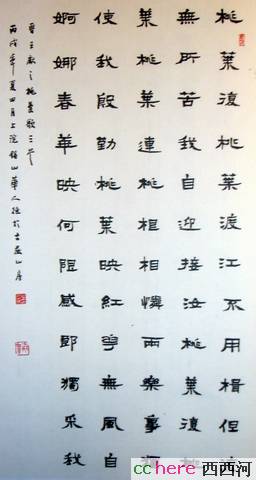 桃葉復桃葉渡江不用楫但渡
無所苦我自迎接汝桃葉復桃
葉桃葉連桃根相憐兩樂事獨
使我殷勤桃葉映紅華無風自
婀娜春華映何限感郎獨采我
晉王獻之桃葉歌三首
丙戌年夏四月上浣 山華人 於 山房
cchere 西西河